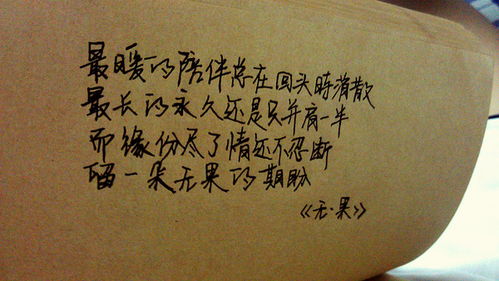 最暖的陪伴总在回头时消散
最长的永久还是只并肩一半
而缘份尽了情还不忍断
留一朵无果的期盼
《无·果》